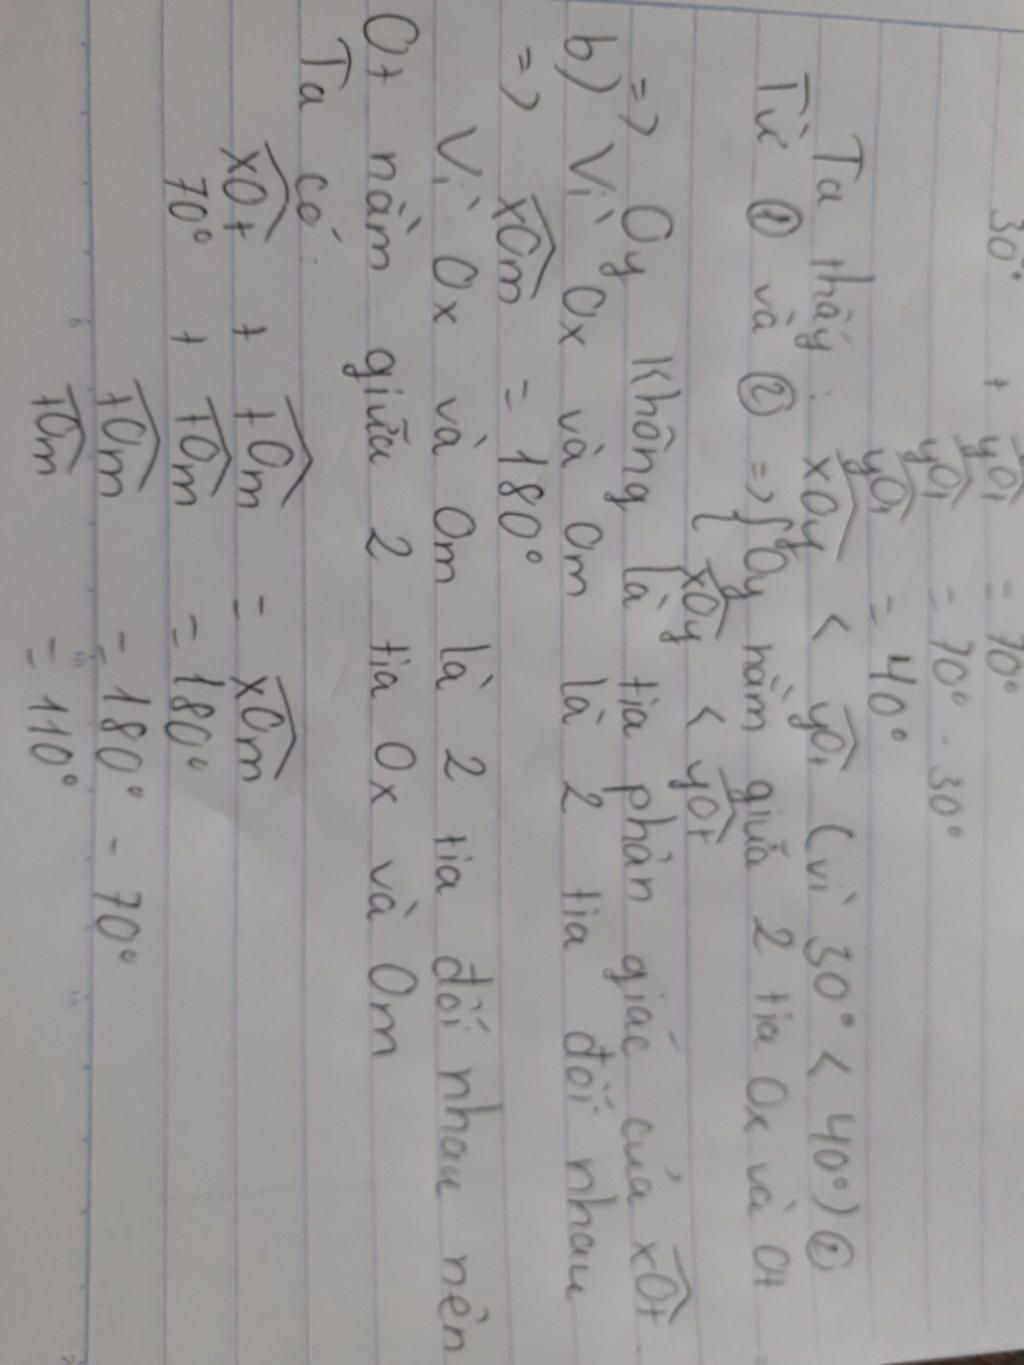 30° + yOt = 70°
yOt = 70° - 30°
yOt = 40°
Ta thấy: xOy < yOt (vì 30° < 40°) ②
Từ ① và ② => { Oy nằm giữa 2 tia Ox và Ot
xOy < yOt
=> Oy không là tia phân giác của xOt
b) Vì Ox và Om là 2 tia đối nhau
=> xOm = 180°
Vì Ox và Om là 2 tia đối nhau nên
Ot nằm giữa 2 tia Ox và Om
Ta có:
xOt + tOm = xOm
70° + tOm = 180°
tOm = 180° - 70°
tOm = 110°